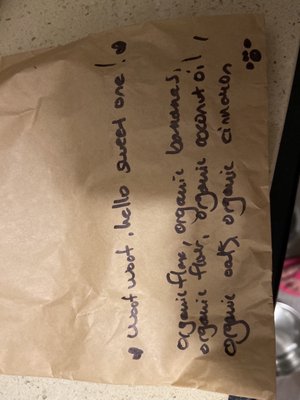 woof woof, hello sweet one!
organic flour, organic bananas,
organic flax, organic coconut oil,
organic oats, organic cinnamon